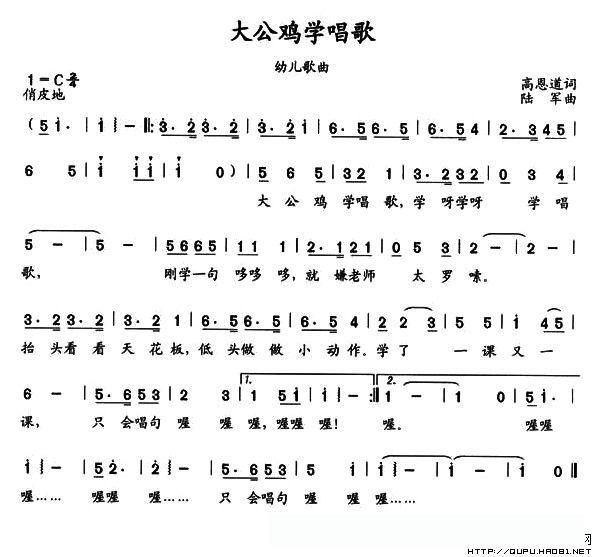 大公鸡学唱歌
幼儿歌曲
1=C 2/4
高恩道词
俏皮地
陆 军曲
( 5 1· | 1 1 - ‖: 3·2 3·2 | 3·2 1 | 6·5 6·5 | 6·5 4 | 5·4 5·4 |
6 5 | 1 1 1 | 1 0 ) | 5 6 5 | 3 2 1 | 3 4 5 | 0 3 4 |
大 公 鸡 学唱 歌, 学 呀学呀 学 唱
5 - | 5 - | 5 6 6 5 | 1 1 1 | 2·1 2 | 0 5 3 | 2 - | 2 - |
歌, 刚学一句 哆哆 哆, 就 嫌老师 太 罗 嗦。
3·2 3·2 | 3·2 1 | 6·5 6·5 | 6·5 4 | 2 2 3 | 5 5 | 1 4 5 |
抬 头看 看 天 花 板, 低 头做 做 小 动作。学了 一 课 又 一
6 - | 5·6 5 3 | 2 3 | 1. 1 5 1 | 1 1 - :‖ 2. 1 - | 1 0 | 5 1· |
课, 只 会唱句 喔 喔 喔, 喔喔 喔! 喔。 喔喔
1 - | 5 2· | 2 - | 5·6 5 3 | 2 3 | 1 - | 1 - | 1 0 ‖
喔…… 喔喔 喔…… 只 会唱句 喔 喔 喔……
网
HTTP://QUPU.HAO81.NET